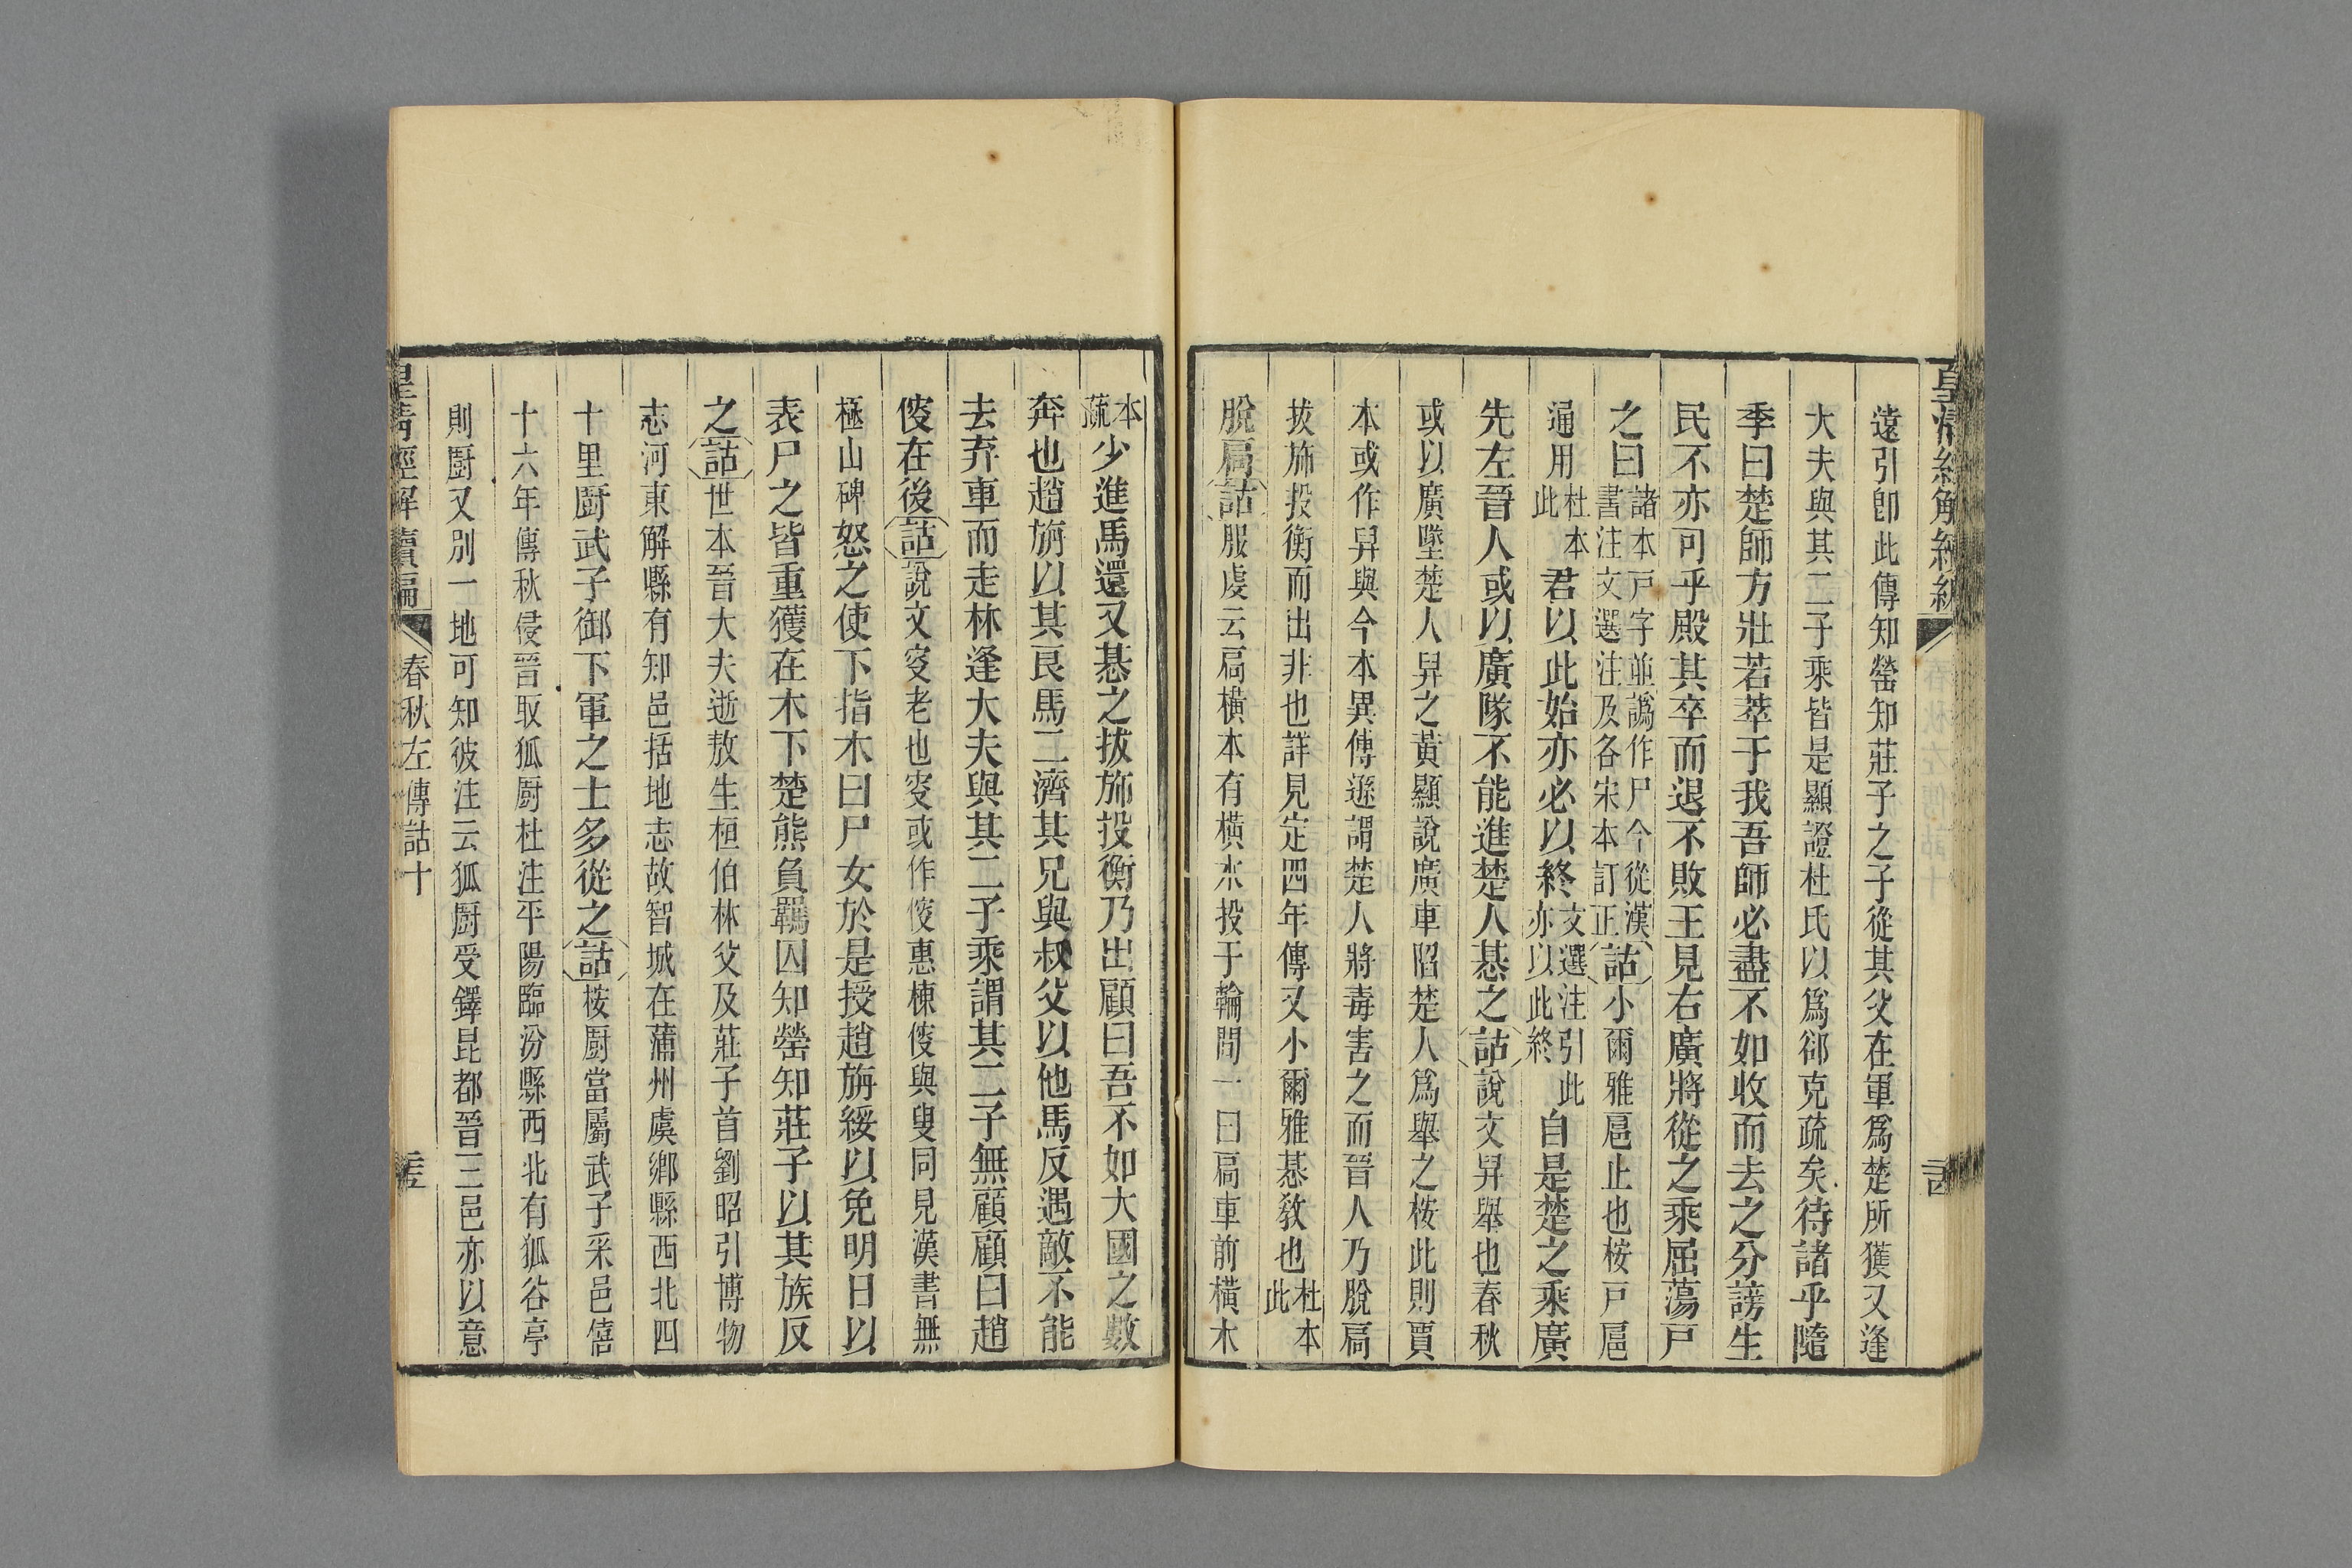 皇清經解續編
遠引卽此傳知罃知莊子之子從其父在軍爲楚所獲又逢
大夫與其二子乘皆是顯證杜氏以爲郤克疏矣待諸乎隨
季曰楚師方壯若萃于我吾師必盡不如收而去之分謗生
民不亦可乎殿其卒而退不敗王見右廣將從之乘屈蕩戸
之曰諸本戸字並譌作尸今從漢書注文選注及各宋本訂正詁小爾雅扈止也桉戸扈
通用杜本此君以此始亦必以終文選注引此亦以此終自是楚之乘廣
先左晉人或以廣隊不能進楚人惎之詁說文舁舉也春秋
或以廣墜楚人舁之黃顥說廣車陷楚人爲舉之桉此則賈
本或作舁與今本異傳遜謂楚人將毒害之而晉人乃脫扃
拔斾投衡而出非也詳見定四年傳又小爾雅惎敎也杜本此
脫扃詁服虔云扃橫木有橫木投于輪間一曰扃車前橫木
本疏少進馬還又惎之拔斾投衡乃出顧曰吾不如大國之數
奔也趙旃以其良馬二濟其兄與叔父以他馬反遇敵不能
去弃車而走林逢大夫與其二子乘謂其二子無顧顧曰趙
傁在後詁說文叜老也叜或作傁惠棟傁與叟同見漢書無
極山碑怒之使下指木曰尸女於是授趙旃綏以免明日以
表尸之皆重獲在木下楚熊負羈囚知罃知莊子以其族反
之詁世本晉大夫逝敖生桓伯林父及莊子首劉昭引博物
志河東解縣有知邑括地志故智城在蒲州虞鄕縣西北四
十里廚武子御下軍之士多從之詁桉廚當屬武子釆邑僖
十六年傳秋侵晉取狐廚杜注平陽臨汾縣西北有狐谷亭
則廚又別一地可知彼注云狐廚受鐸昆都晉三邑亦以意
皇淸經解續編
春秋左傳詁十